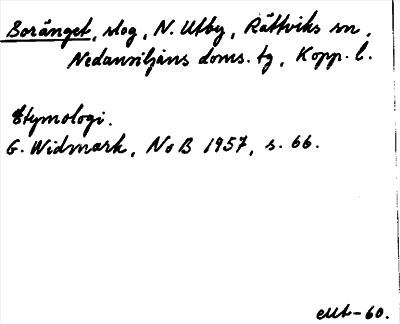 Soränget, slog, N. Utby, Rättviks sn,
Nedansiljans doms. tg, Kopp. l.
Etymologi.
G. Widmark, NoB 1957, s. 66.
-60.